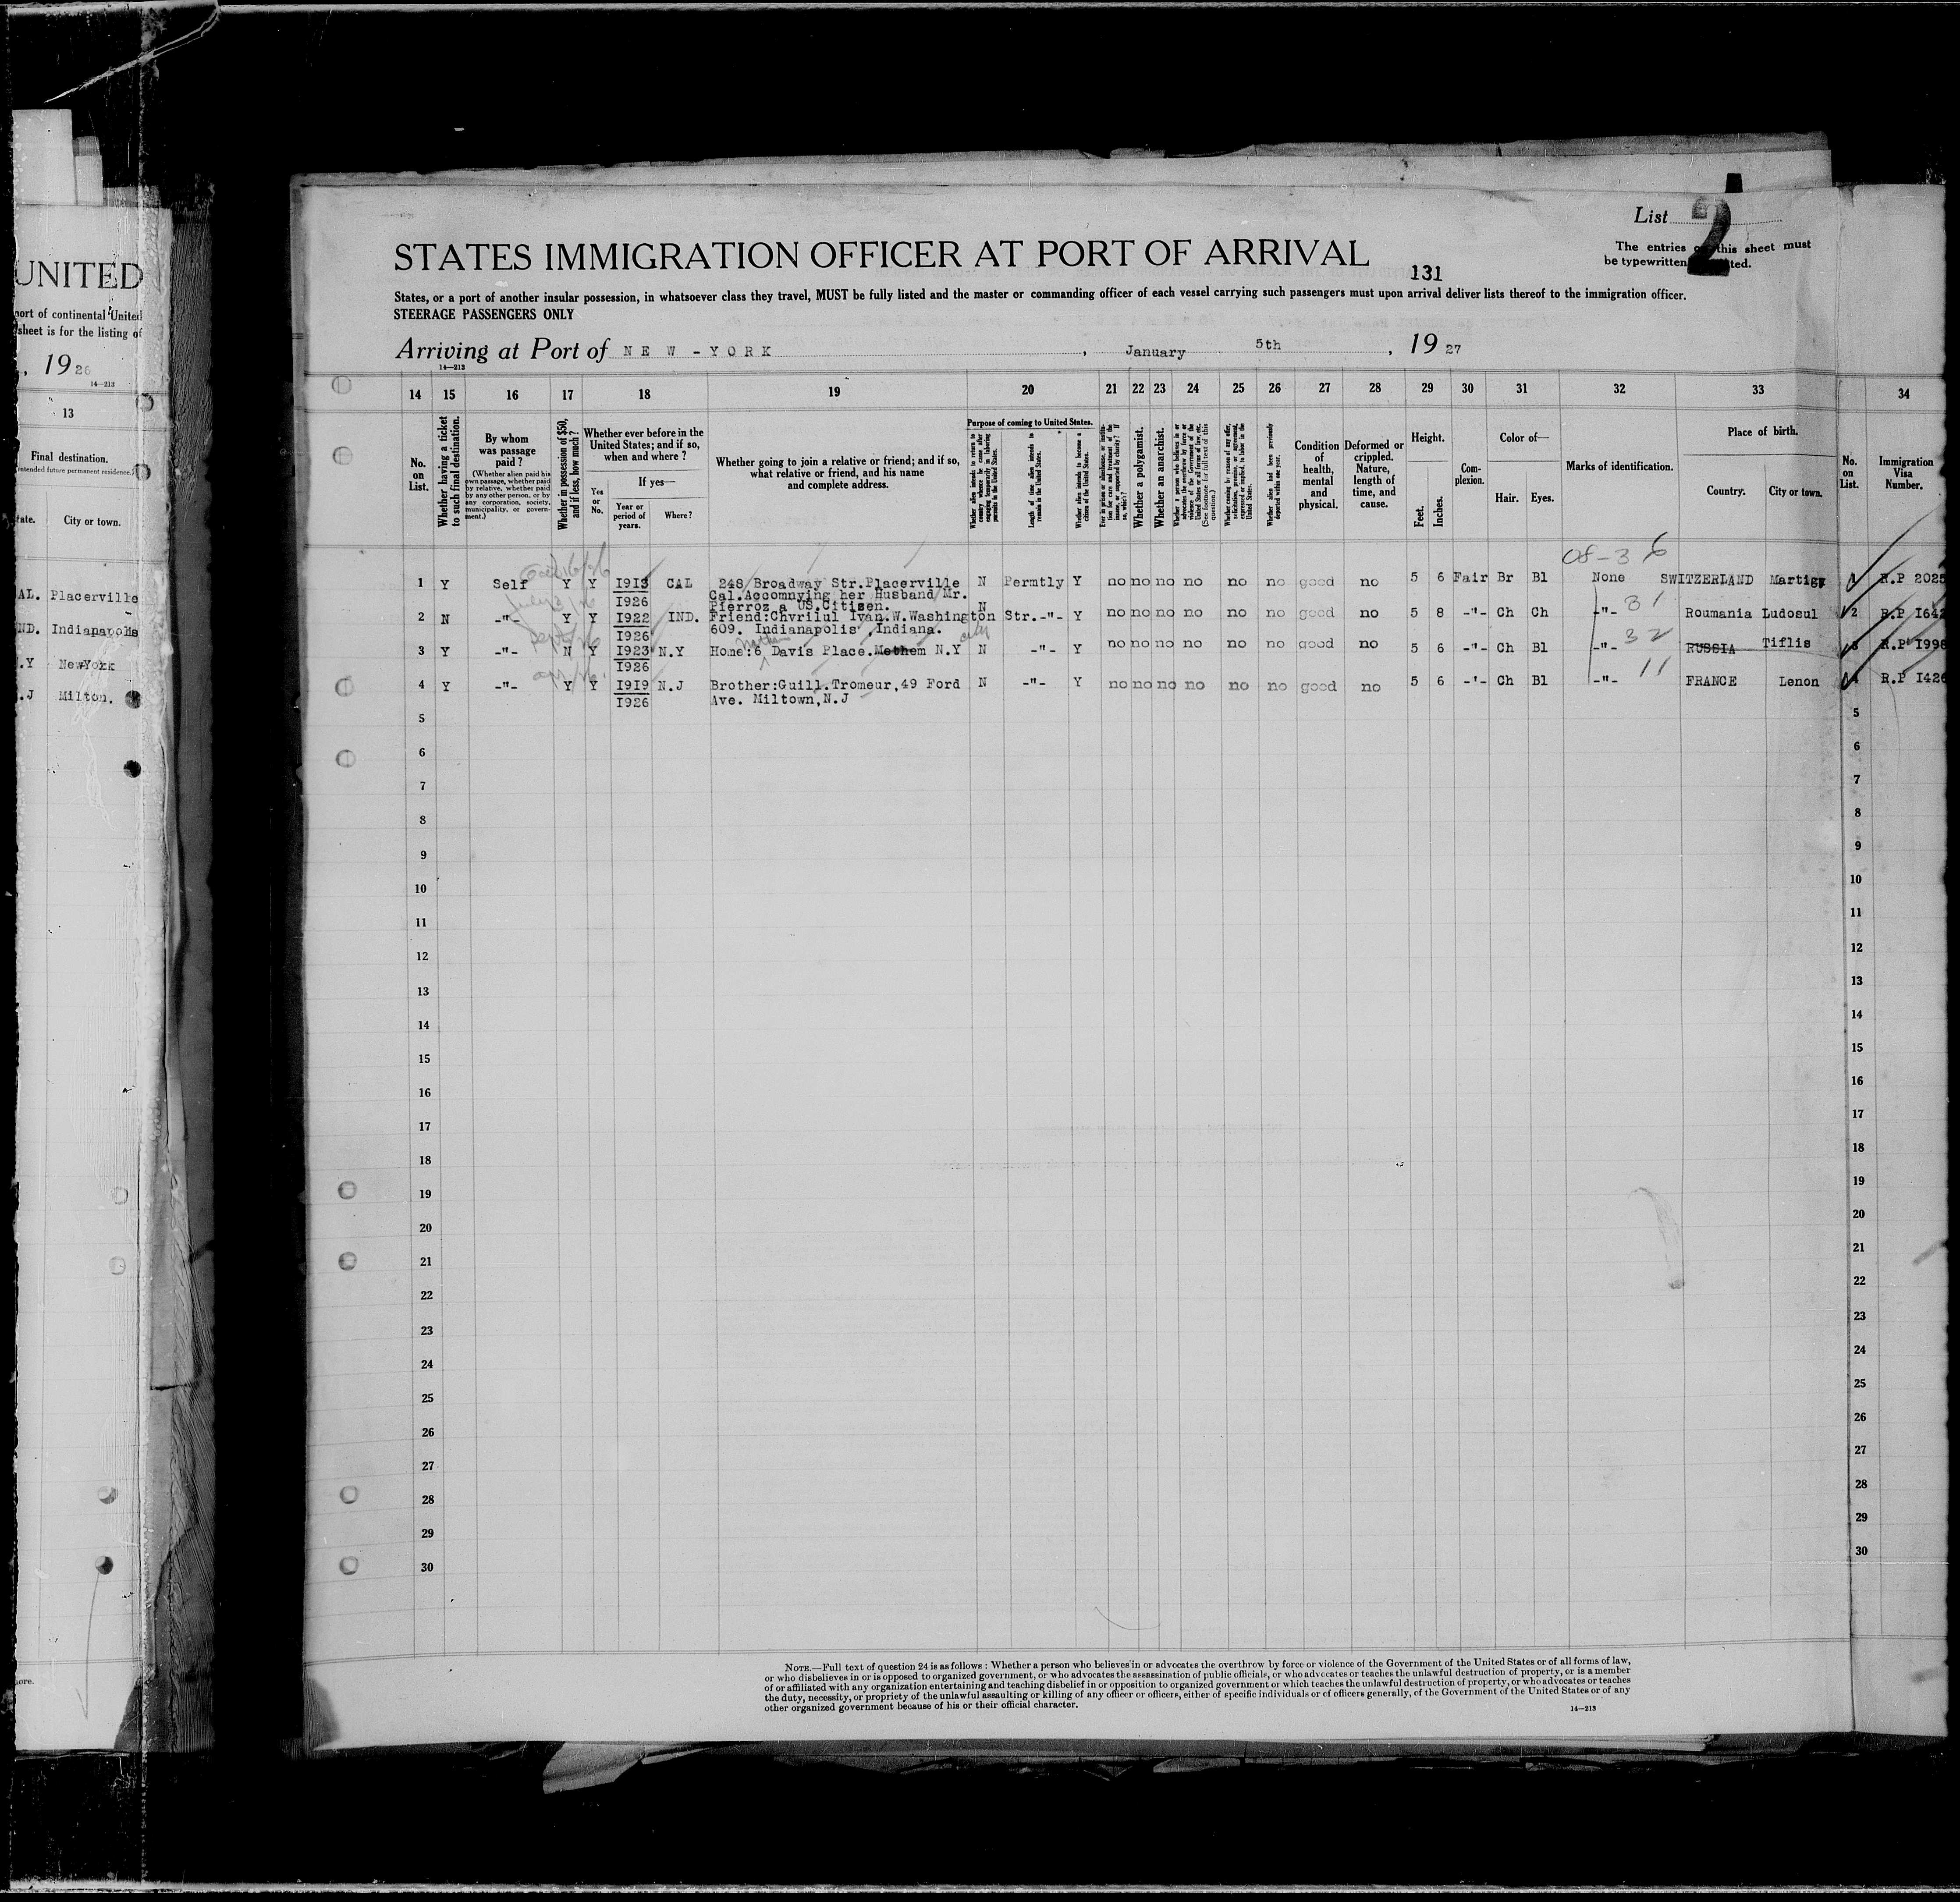 UNITED
port of continental United
sheet is for the listing of
, 19 26
14—213
13
Final destination.
City or town.
AL. Placerville
ND. Indianapolis
.Y NewYork
.J Milton.
List 2
The entries on this sheet must
be typewritten
STATES IMMIGRATION OFFICER AT PORT OF ARRIVAL
131
States, or a port of another insular possession, in whatsoever class they travel, MUST be fully listed and the master or commanding officer of each vessel carrying such passengers must upon arrival deliver lists thereof to the immigration officer.
STEERAGE PASSENGERS ONLY
Arriving at Port of NEW-YORK, January 5th, 19 27
14—213
14 15 16 17 18 19 20 21 22 23 24 25 26 27 28 29 30 31 32 33 34
No. on List.
Whether having a ticket to such final destination.
By whom was passage paid?
(Whether alien paid his own passage, whether paid by relative, whether paid by any other person, or by any corporation, society, municipality, or government.)
Whether in possession of $50, and if less, how much?
Whether ever before in the United States; and if so, when and where?
Yes or No.
If yes—
Year or period of years.
Where?
Whether going to join a relative or friend; and if so, what relative or friend, and his name and complete address.
Purpose of coming to United States.
Whether alien intends to return to country whence he came after engaging temporarily in laboring pursuits in the United States.
Length of time alien intends to remain in the United States.
Whether alien intends to become a citizen of the United States.
Ever in prison or almshouse, or institution for care and treatment of the insane, or supported by charity? If so, which?
Whether a polygamist.
Whether an anarchist.
Whether a person who believes in or advocates the overthrow by force or violence of the Government of the United States or all forms of law, etc. (See footnote for full text of this question.)
Whether coming by reason of any offer, solicitation, promise, or agreement, expressed or implied, to labor in the United States.
Whether alien had been previously deported within one year.
Condition of health, mental and physical.
Deformed or crippled. Nature, length of time, and cause.
Height.
Feet.
Inches.
Complexion.
Color of—
Hair.
Eyes.
Marks of identification.
Place of birth.
Country.
City or town.
No. on List.
Immigration Visa Number.
1 Y Self Y Y I913 CAL 248 Broadway Str.Placerville N Permtly Y no no no no no no good no 5 6 Fair Br Bl None SWITZERLAND Martigy 1 R.P 2025
I926 Cal.Accomnying her Husband Mr.
Pierroz a US.Citizen.
2 N -"- Y Y I922 IND. Friend:Chvrilul Ivan.W.Washington Str. N -"- Y no no no no no no good no 5 8 -"- Ch Ch -"- 31 Roumania Ludosul 2 R.P I642
I926 609. Indianapolis ,Indiana.
3 Y -"- N Y I923 N.Y Home:6 Davis Place. Methem N.Y N -"- Y no no no no no no good no 5 6 -"- Ch Bl -"- 32 RUSSIA Tiflis 3 R.P I998
I926
4 Y -"- Y Y I919 N.J Brother:Guill.Tromeur,49 Ford N -"- Y no no no no no no good no 5 6 -"- Ch Bl -"- 11 FRANCE Lenon 4 R.P I426
I926 Ave. Miltown,N.J
5 5
6 6
7 7
8 8
9 9
10 10
11 11
12 12
13 13
14 14
15 15
16 16
17 17
18 18
19 19
20 20
21 21
22 22
23 23
24 24
25 25
26 26
27 27
28 28
29 29
30 30
NOTE.—Full text of question 24 is as follows: Whether a person who believes in or advocates the overthrow by force or violence of the Government of the United States or of all forms of law,
or who disbelieves in or is opposed to organized government, or who advocates the assassination of public officials, or who advocates or teaches the unlawful destruction of property, or is a member
of or affiliated with any organization entertaining and teaching disbelief in or opposition to organized government or which teaches the unlawful destruction of property, or who advocates or teaches
the duty, necessity, or propriety of the unlawful assaulting or killing of any officer or officers, either of specific individuals or of officers generally, of the Government of the United States or of any
other organized government because of his or their official character.
14—213